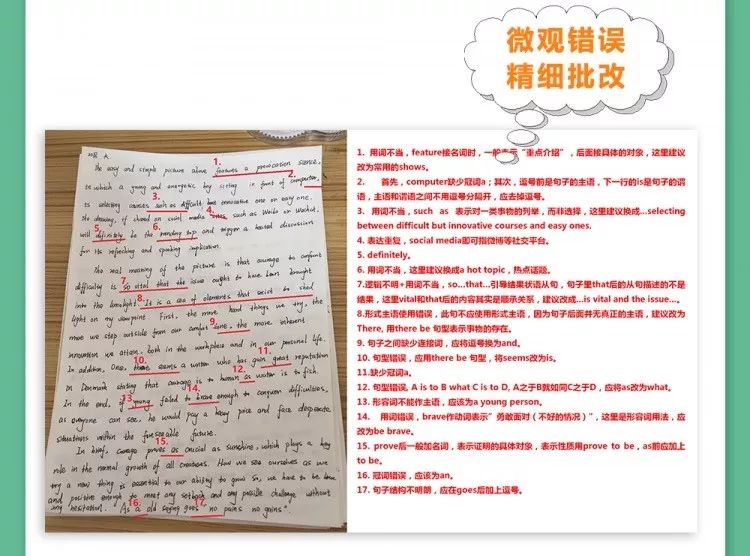 微观错误
精细批改
2018 A
The easy and simple picture above features a provocation science,
in which a young and energetic boy sitting in front of computer,
is selecting courses such as difficult but innovative one or easy one.
The drawing, if shared on social media sites such as Weibo or Wechat,
will definitely be the trending top and trigger a heated discussion
for its refreching and sparking implication.
The real meaning of the picture is that courage to confront
difficulty is so vital that the issue ought to have been brought
into the limelight. It is a sea of elements that exist to shed
light on my viewpoint. First, the more hard things we try, the
more we step outside from our comfort zone, the more inherent
innovation we attain, both in the workplace and in our personal life.
In addition, One there seems a writer who has gain great reputation
in Denmark stating that courage is to human as water is to fish.
In the end, if young failed to brave enough to conquer difficulties,
as everyone can see, he would pay a heavy price and face desperate
situations within the foreseeble future.
In brief, courage proves as crucial as sunshine, which plays a key
role in the normal growth of all creatures. How we see ourselves as we
try a new thing is essential to our ability to grow. So, we have to be brave
and positive enough to meet any setback and any possible challenge without
any hesitation. As a old saying goes "no pains no gains."
1. 用词不当，feature接名词时，一般表示“重点介绍”，后面接具体的对象，这里建议
改为常用的shows。
2. 首先，computer缺少冠词a；其次，逗号前是句子的主语，下一行的is是句子的谓
语，主语和谓语之间不用逗号分隔开，应去掉逗号。
3. 用词不当，such as 表示对一类事物的列举，而非选择，这里建议换成...selecting
between difficult but innovative courses and easy ones.
4. 表达重复，social media即可指微博等社交平台。
5. definitely。
6. 用词不当，这里建议换成a hot topic，热点话题。
7.逻辑不明+用词不当，so...that...引导结果状语从句，句子里that后的从句描述的不是
结果，这里vital和that后的内容其实是顺承关系，建议改成...is vital and the issue...。
8.形式主语使用错误，此句不应使用形式主语，因为句子后面并无真正的主语，建议改为
There, 用there be 句型表示事物的存在。
9. 句子之间缺少连接词，应将逗号换为and。
10. 句型错误，应用there be 句型，将seems改为is。
11.缺少冠词a。
12. 句型错误，A is to B what C is to D, A之于B就如同C之于D，应将as改为what。
13. 形容词不能作主语，应该为a young person。
14. 用词错误，brave作动词表示“勇敢面对（不好的情况）”，这里是形容词用法，应
改为be brave。
15. prove后一般加名词，表示证明的具体对象，表示性质用prove to be，as前应加上
to be。
16. 冠词错误，应该为an。
17. 句子结构不明朗，应在goes后加上逗号。